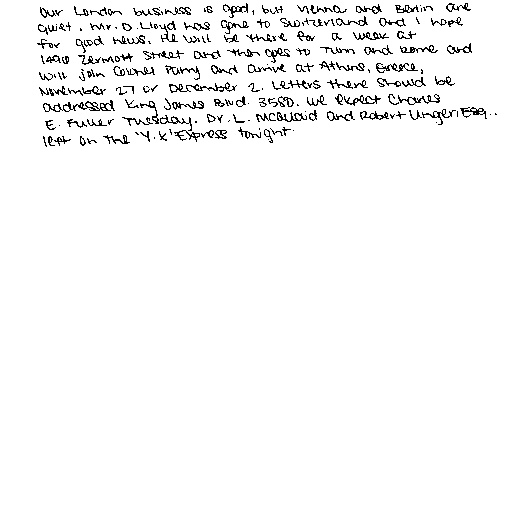 Our London business is good, but Vienna and Berlin are
quiet. Mr. D. Lloyd has gone to Switzerland and I hope
for good news. He will be there for a week at
1496 Zermott Street and then goes to Turin and Rome and
will join Colonel Parry and arrive at Athens, Greece,
November 27 or December 2. Letters there should be
addressed King James Blvd. 3580. We expect Charles
E. Fuller Tuesday. Dr. L. McQuaid and Robert Unger, Esq.,
left on the 'Y.X' Express tonight.